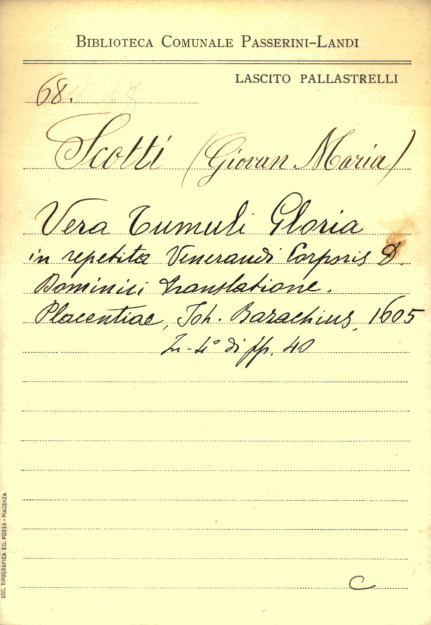 BIBLIOTECA COMUNALE PASSERINI-LANDI
LASCITO PALLASTRELLI
68.
Scotti (Giovan Maria)
Vera Tumuli Gloria
in repetita Venerandi Corporis D.
Dominici translatione.
Placentiae, Joh. Barachius, 1605
In-4° di pp. 40
C
SOC. TIPOGRAFICA ED. PORTA - PIACENZA